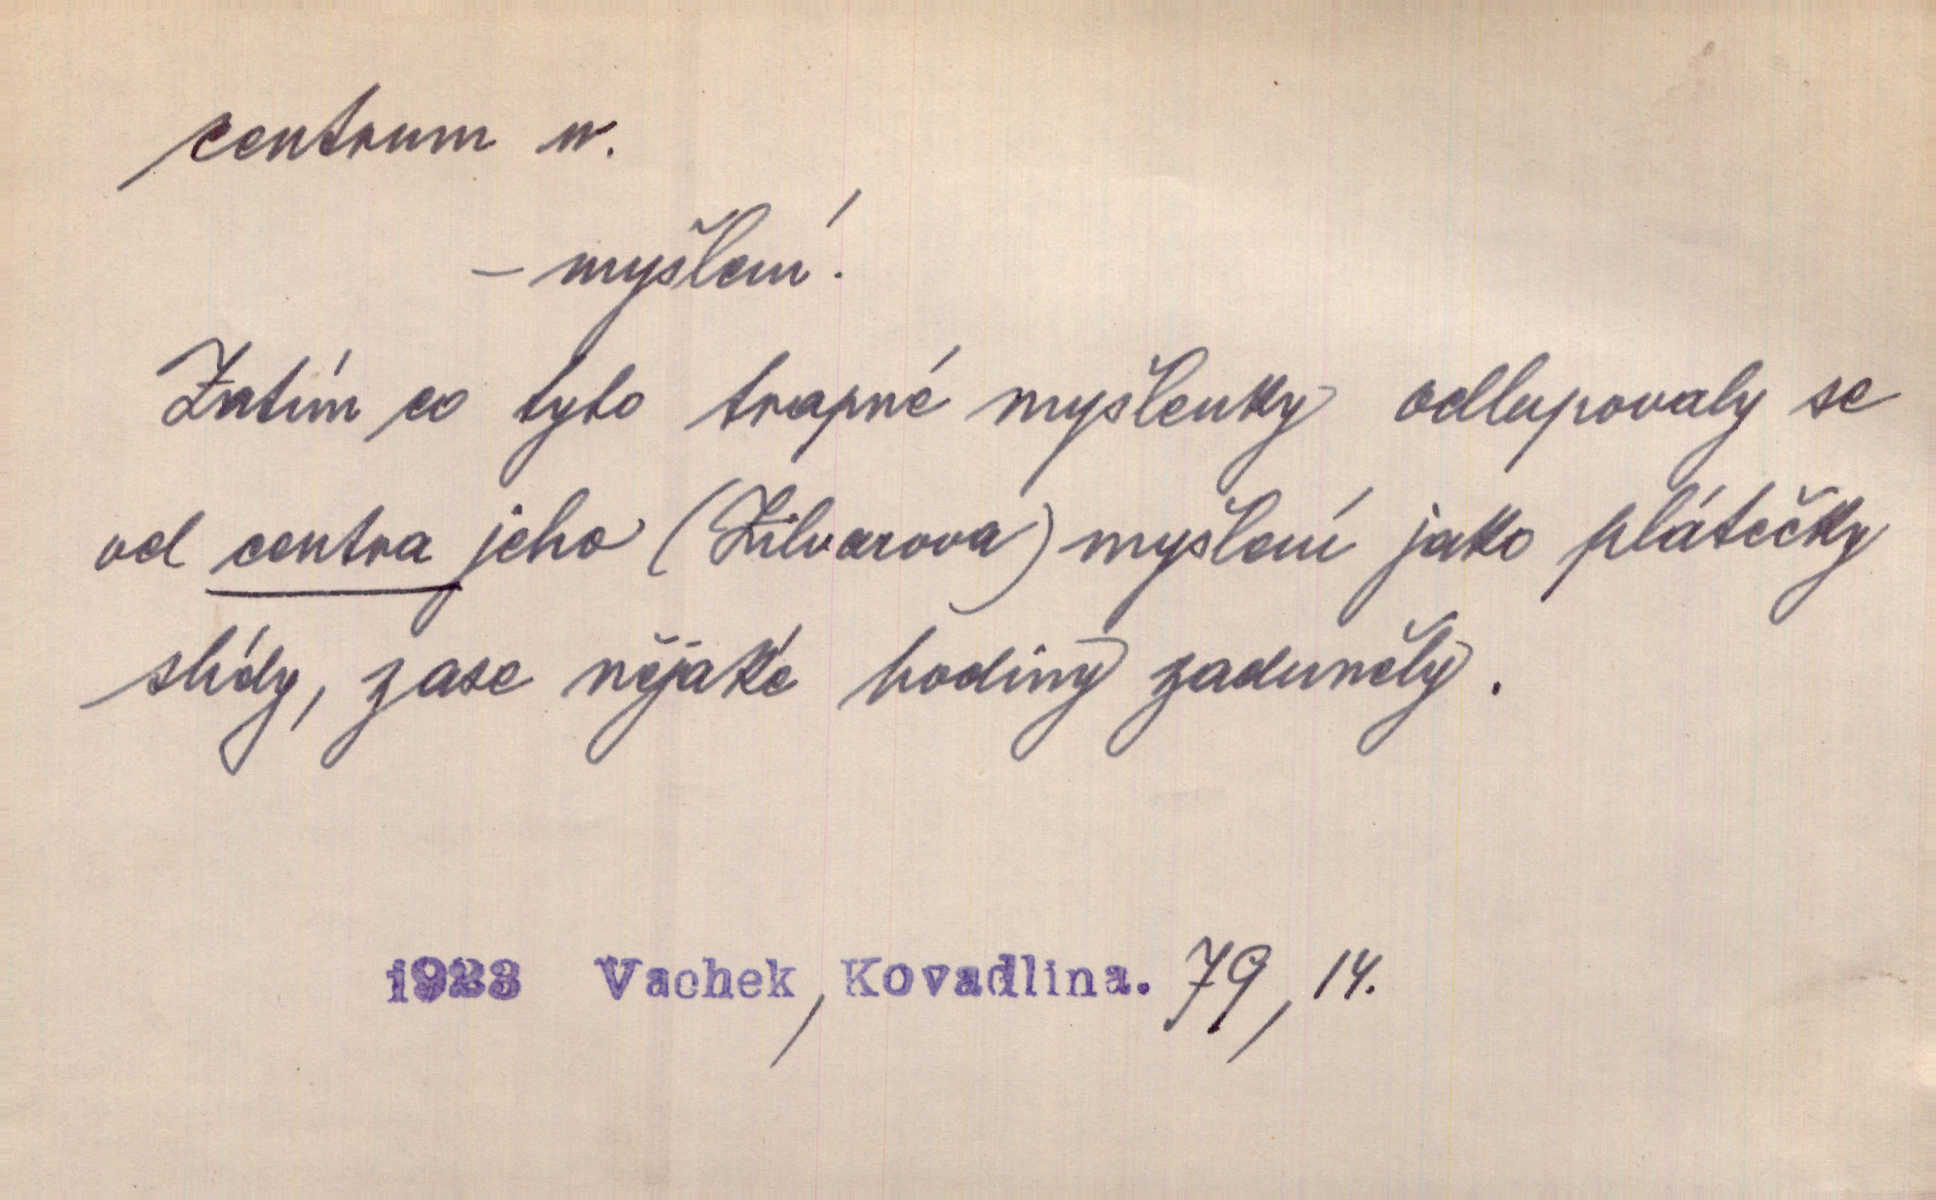 centrum n.
– myšlení.
Zatím co tyto trapné myšlenky odlupovaly se
od centra jeho (Žilvarova) myšlení jako plátečky
slídy, zase nějaké hodiny zaduněly.
1933 Vachek, Kovadlina. 79, 14.